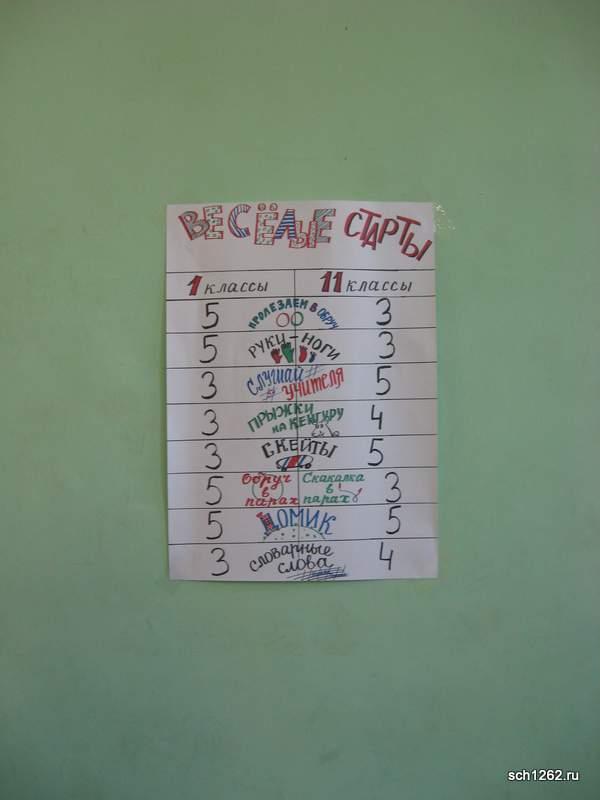 ВЕСЁЛЫЕ СТАРТЫ
1 классы 11 классы
5 ПРОЛЕЗАЕМ В ОБРУЧ 3
5 РУКИ-НОГИ 3
3 СЛУШАЙ УЧИТЕЛЯ 5
3 ПРЫЖКИ НА КЕНГУРУ 4
3 СКЕЙТЫ 5
5 Обруч в парах Скакалка в парах 3
5 ДОМИК 5
3 словарные слова 4
sch1262.ru